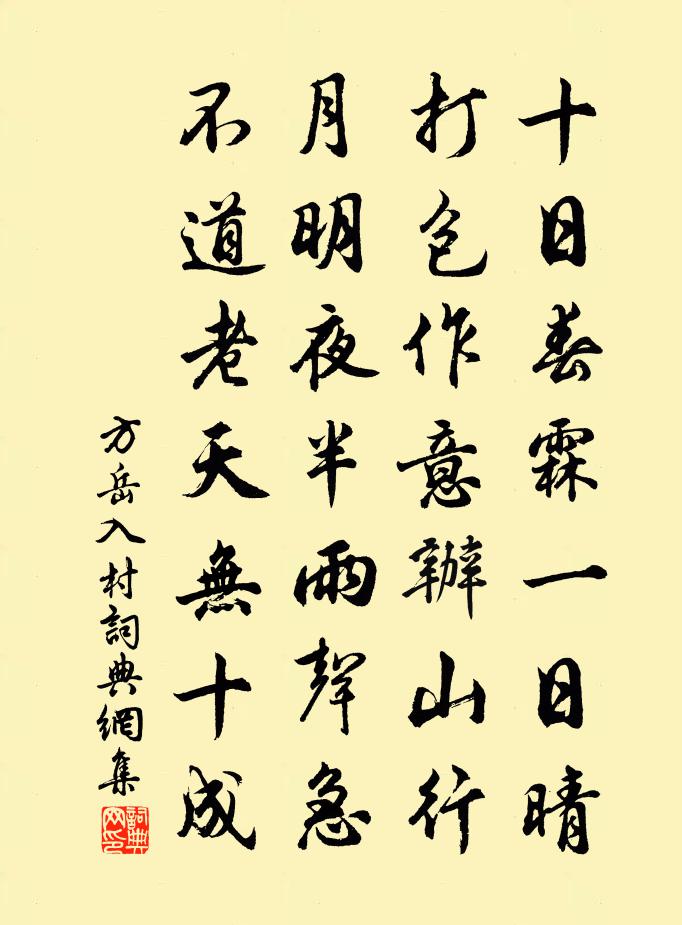 十日春霖一日晴
打包作意辦山行
月明夜半雨聲急
不道老天無十成
方岳入村詞典網集
詞典
网印